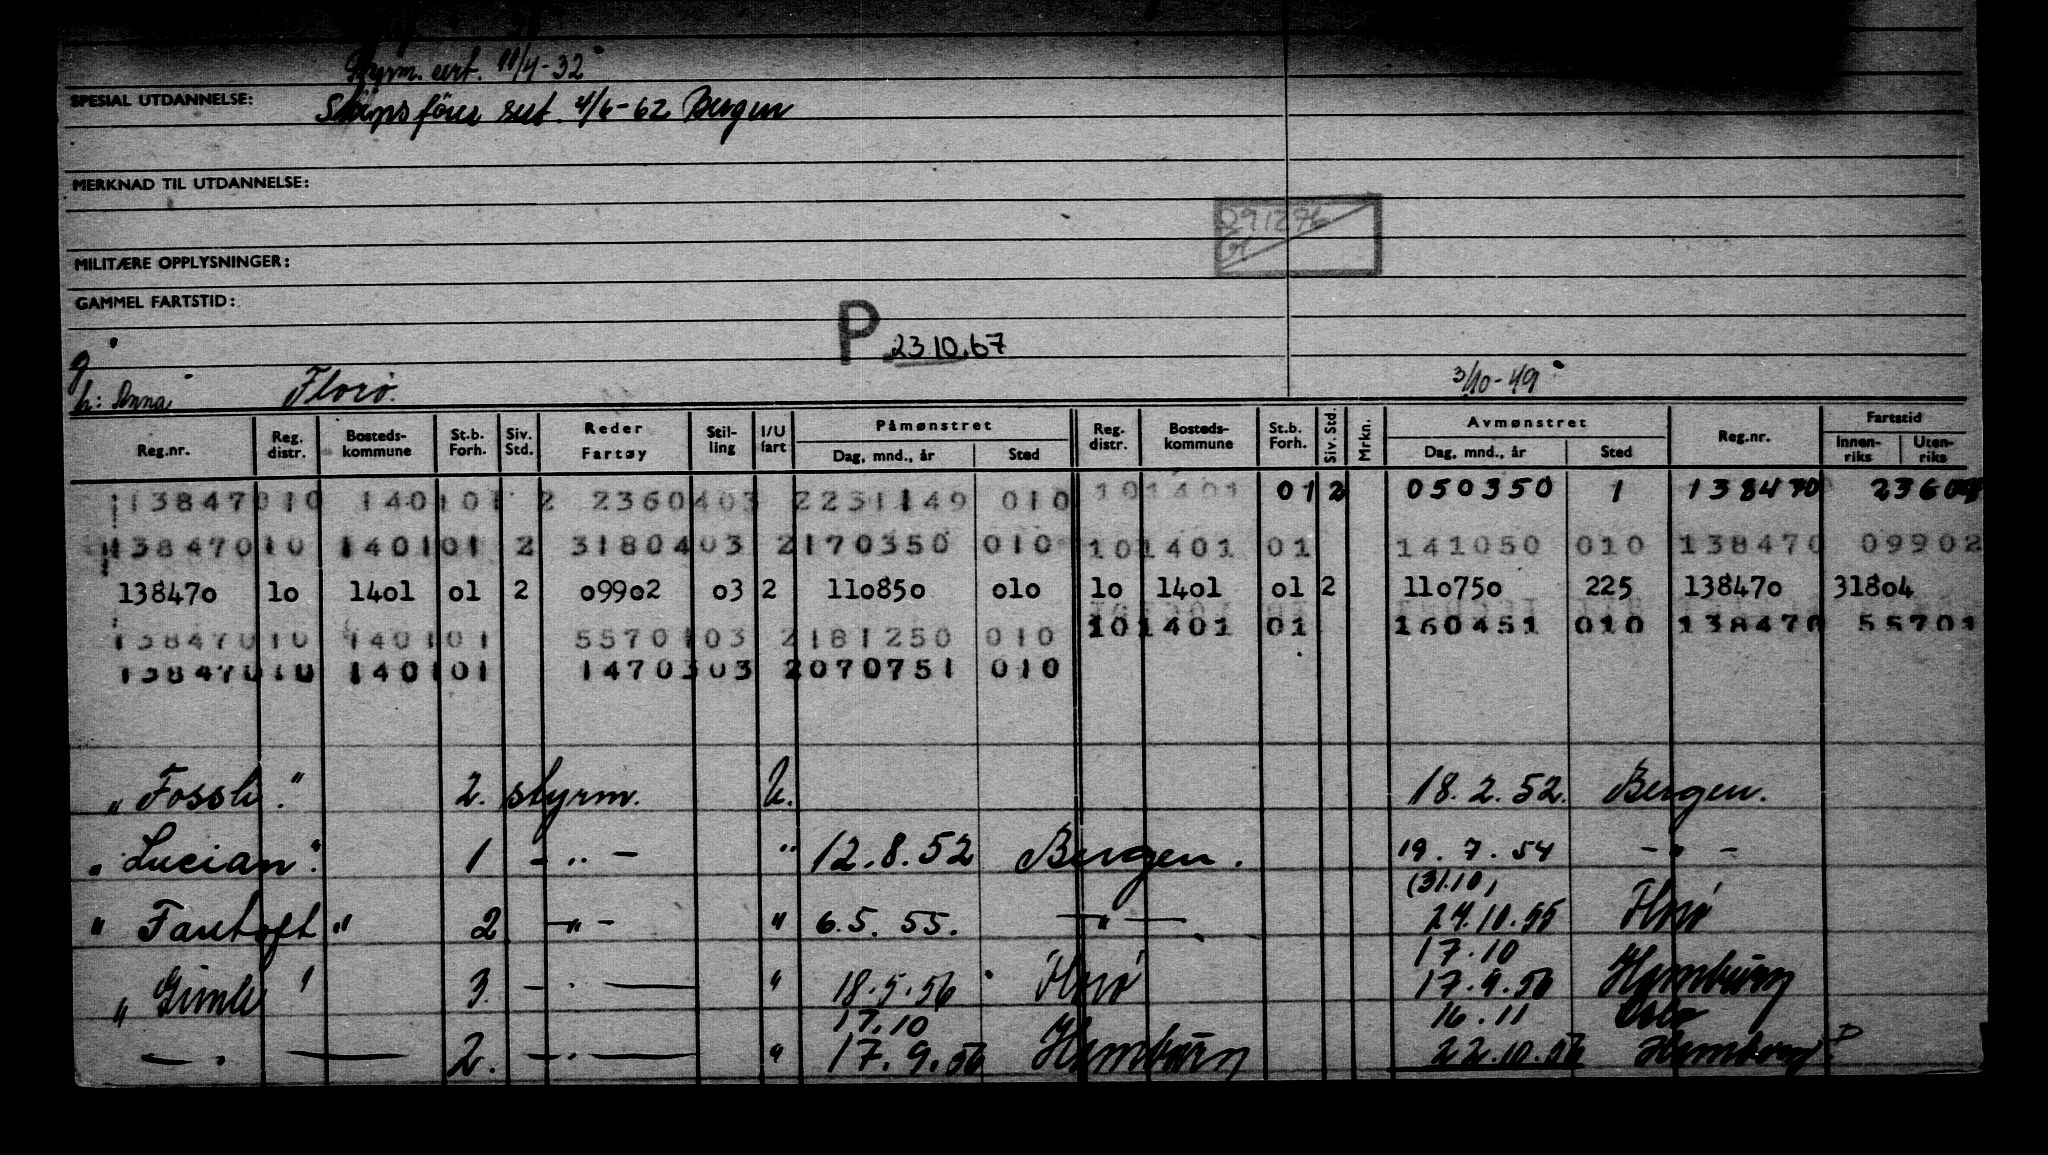 Styrm. cert. 11/4-32
SPESIAL UTDANNELSE: Skipsfører sert. 4/6-62 Bergen
MERKNAD TIL UTDANNELSE:
291276
MILITÆRE OPPLYSNINGER:
GAMMEL FARTSTID:
P 23.10.67
g
h: Anna Florø. 3/10-49
Reg.nr. Reg. distr. Bosteds-kommune St.b. Forh. Siv. Std. Reder Fartøy Stil-ling I/U fart Påmønstret Dag, mnd., år Sted Reg. distr. Bosteds-kommune St.b. Forh. Siv. Std. Mrkn. Avmønstret Dag, mnd., år Sted Reg.nr. Fartstid Innen-riks Uten-riks
138470 10 1401 01 2 23604 03 2 231149 010 10 1401 01 2 050350 1 138470 23604
138470 10 1401 01 2 31804 03 2 170350 010 10 1401 01 141050 010 138470 09902
138470 10 1401 01 2 09902 03 2 110850 010 10 1401 01 2 110750 225 138470 31804
138470 10 1401 01 55701 03 2 181250 010 10 1401 01 160451 010 138470 55701
138470 10 1401 01 14703 03 2 070751 010
„Fossli." 2. styrm. U. 18.2.52. Bergen.
„Lucian". 1 - " - " 12.8.52 Bergen. 19.7.54 - " -
(31.10)
" Fantoft " 2 - " - " 6.5.55. - " - 24.10.55 Florø
17.10
„Gimle" 3. - " - " 18.5.56 Florø 17.9.56 Hamburg
17.10 16.11 Oslo
- " - 2. - " - " 17.9.56 Hamburg 22.10.56 Hamburg D